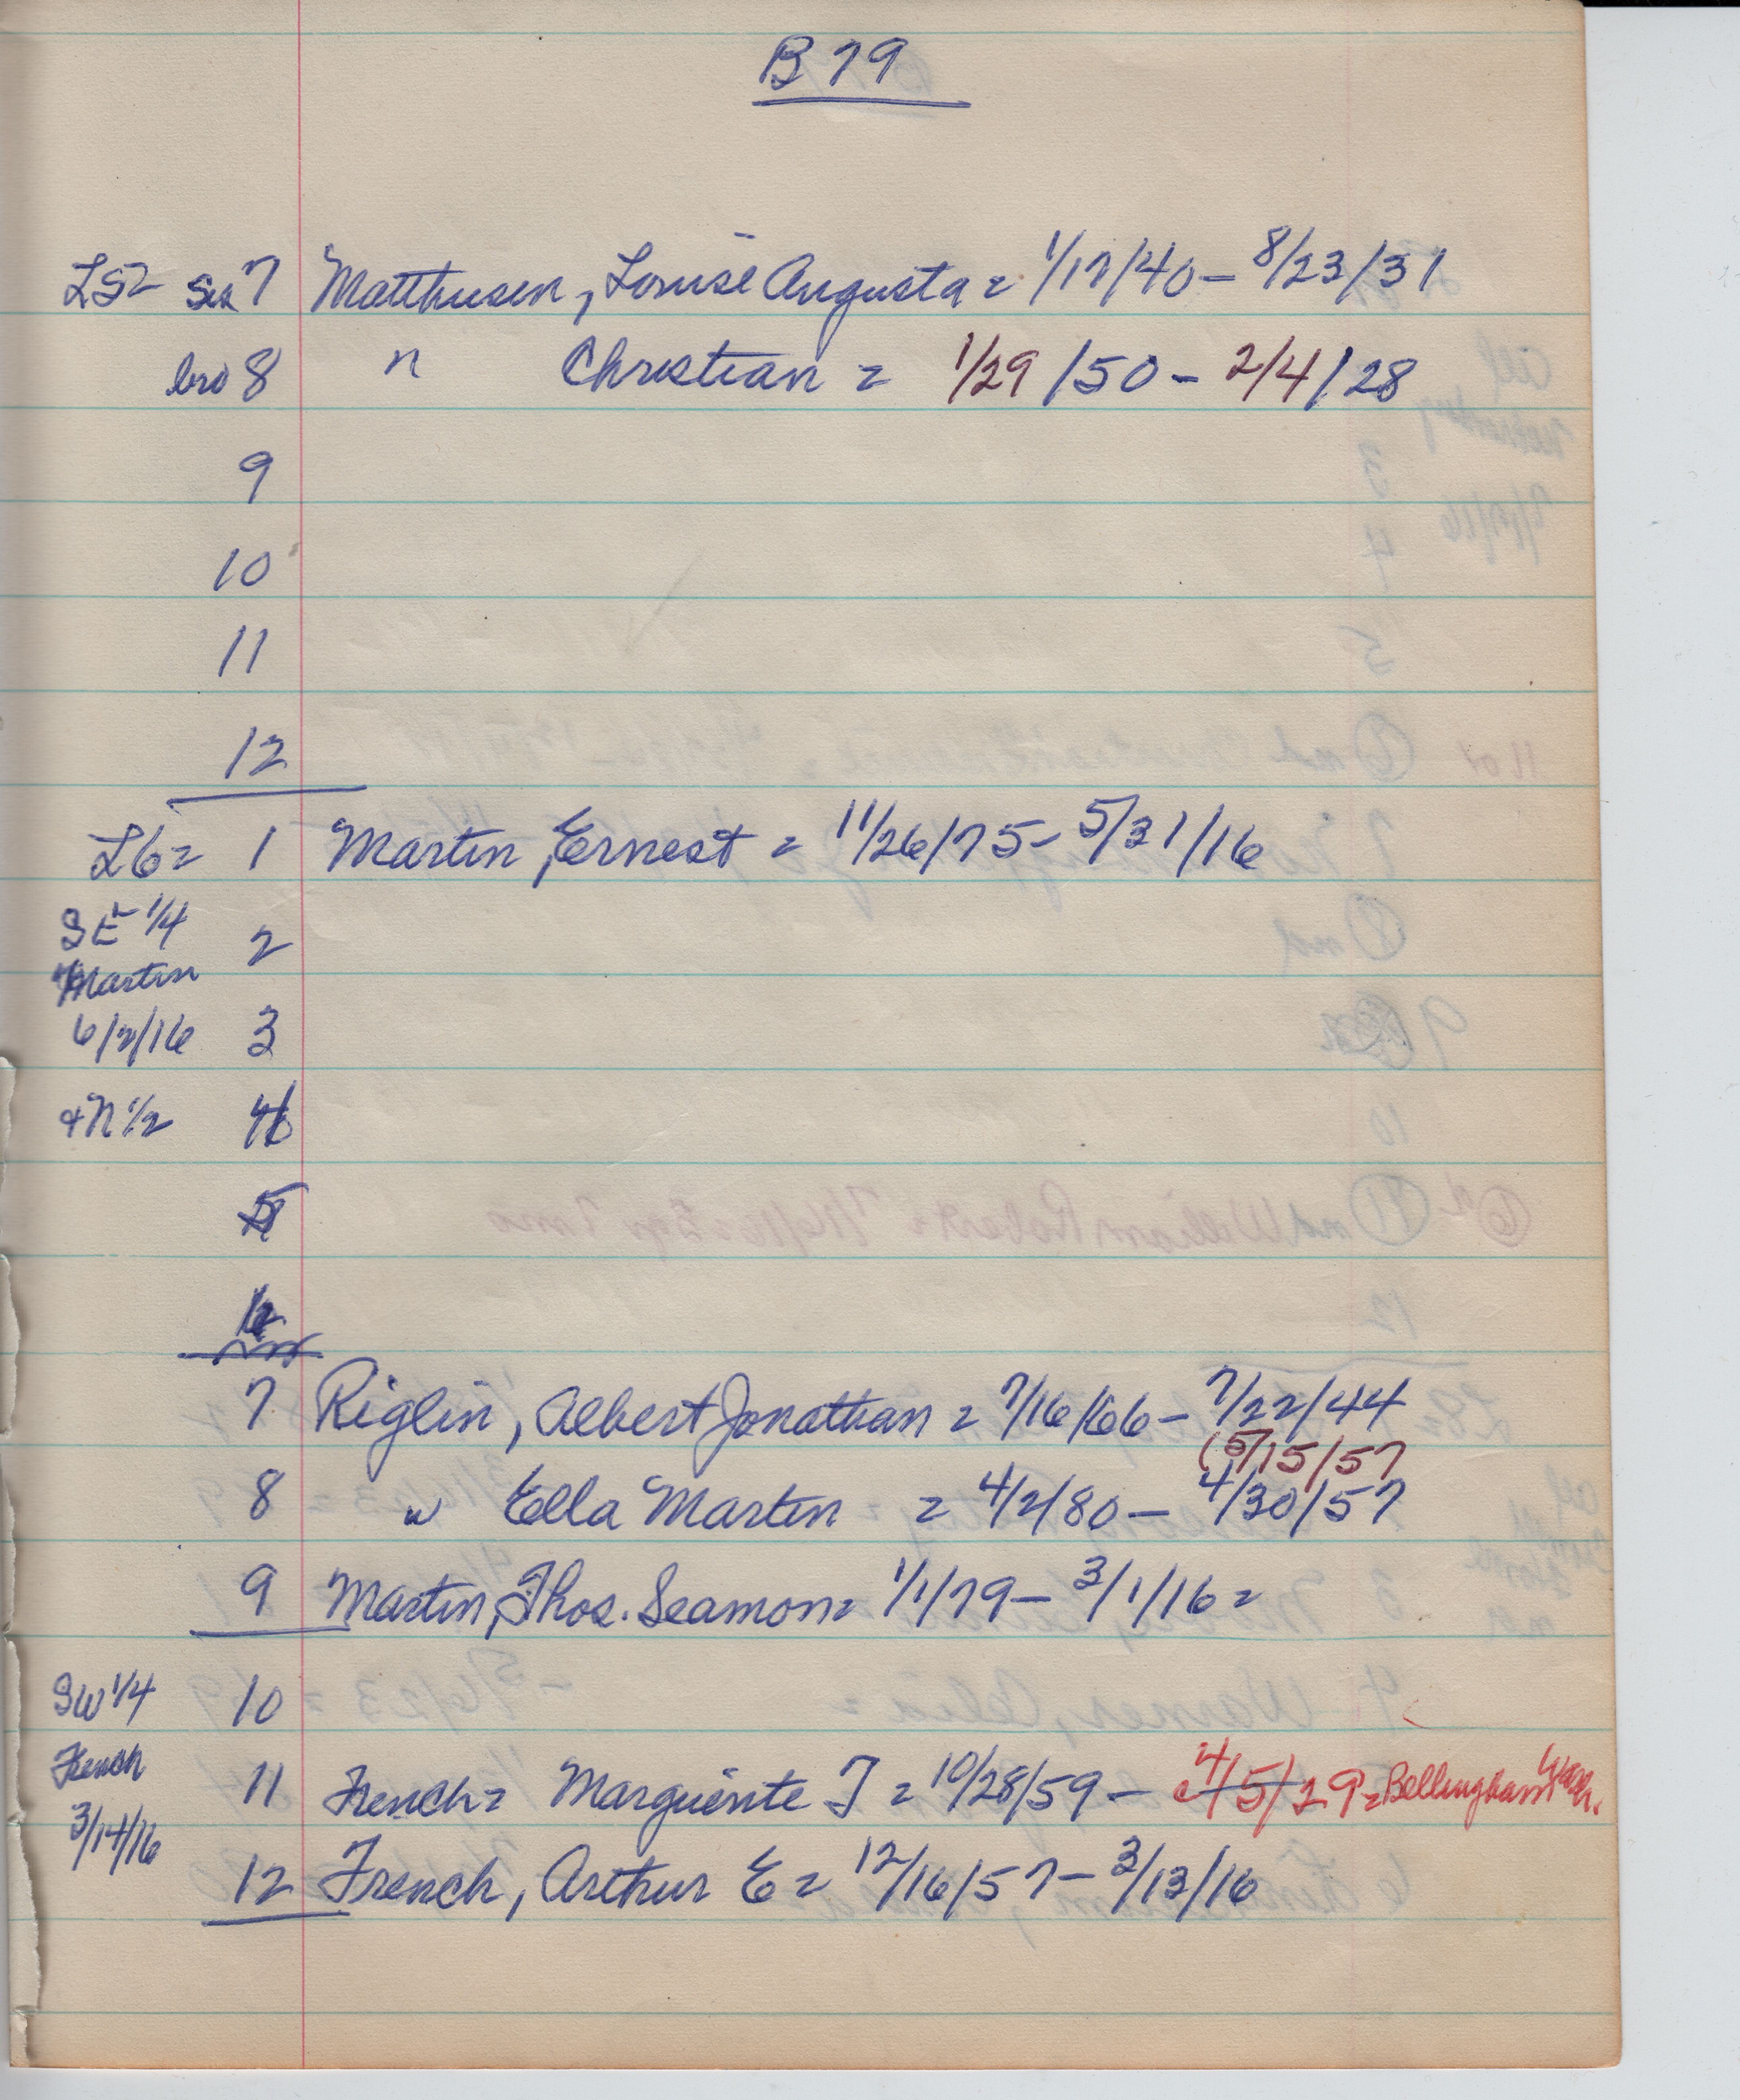 B 79
L5= Sis 7 Matthusen, Louise Augusta = 1/17/40 - 8/23/31
bro 8 " Christian = 1/29/50 - 2/4/28
9
10
11
12
L6= 1 Martin, Ernest = 11/26/75 - 5/31/16
SE 1/4 2
Martin
6/2/16 3
+ N 1/2 4
5
7 Riglin, Albert Jonathan = 7/16/66 - 7/22/44
(5/15/57
8 " Ella Martin = 4/2/80 - 4/30/57
9 Martin, Thos. Seamon = 1/1/79 - 3/1/16 =
SW 1/4 10
French 11 French = Marguerite J = 10/28/59 - 4/5/29 = Bellingham Wash.
3/14/16
12 French, Arthur E = 12/16/57 - 3/13/16